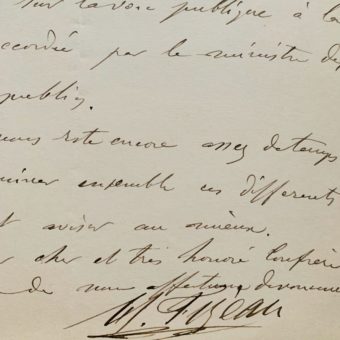 sur la voie publique à la
ccordée par le ministre de
publics.
nous reste encore assez de temps
miner ensemble ces différents
t aviser au mieux.
r cher et très honoré Confrère
de mon affectueux dévouement